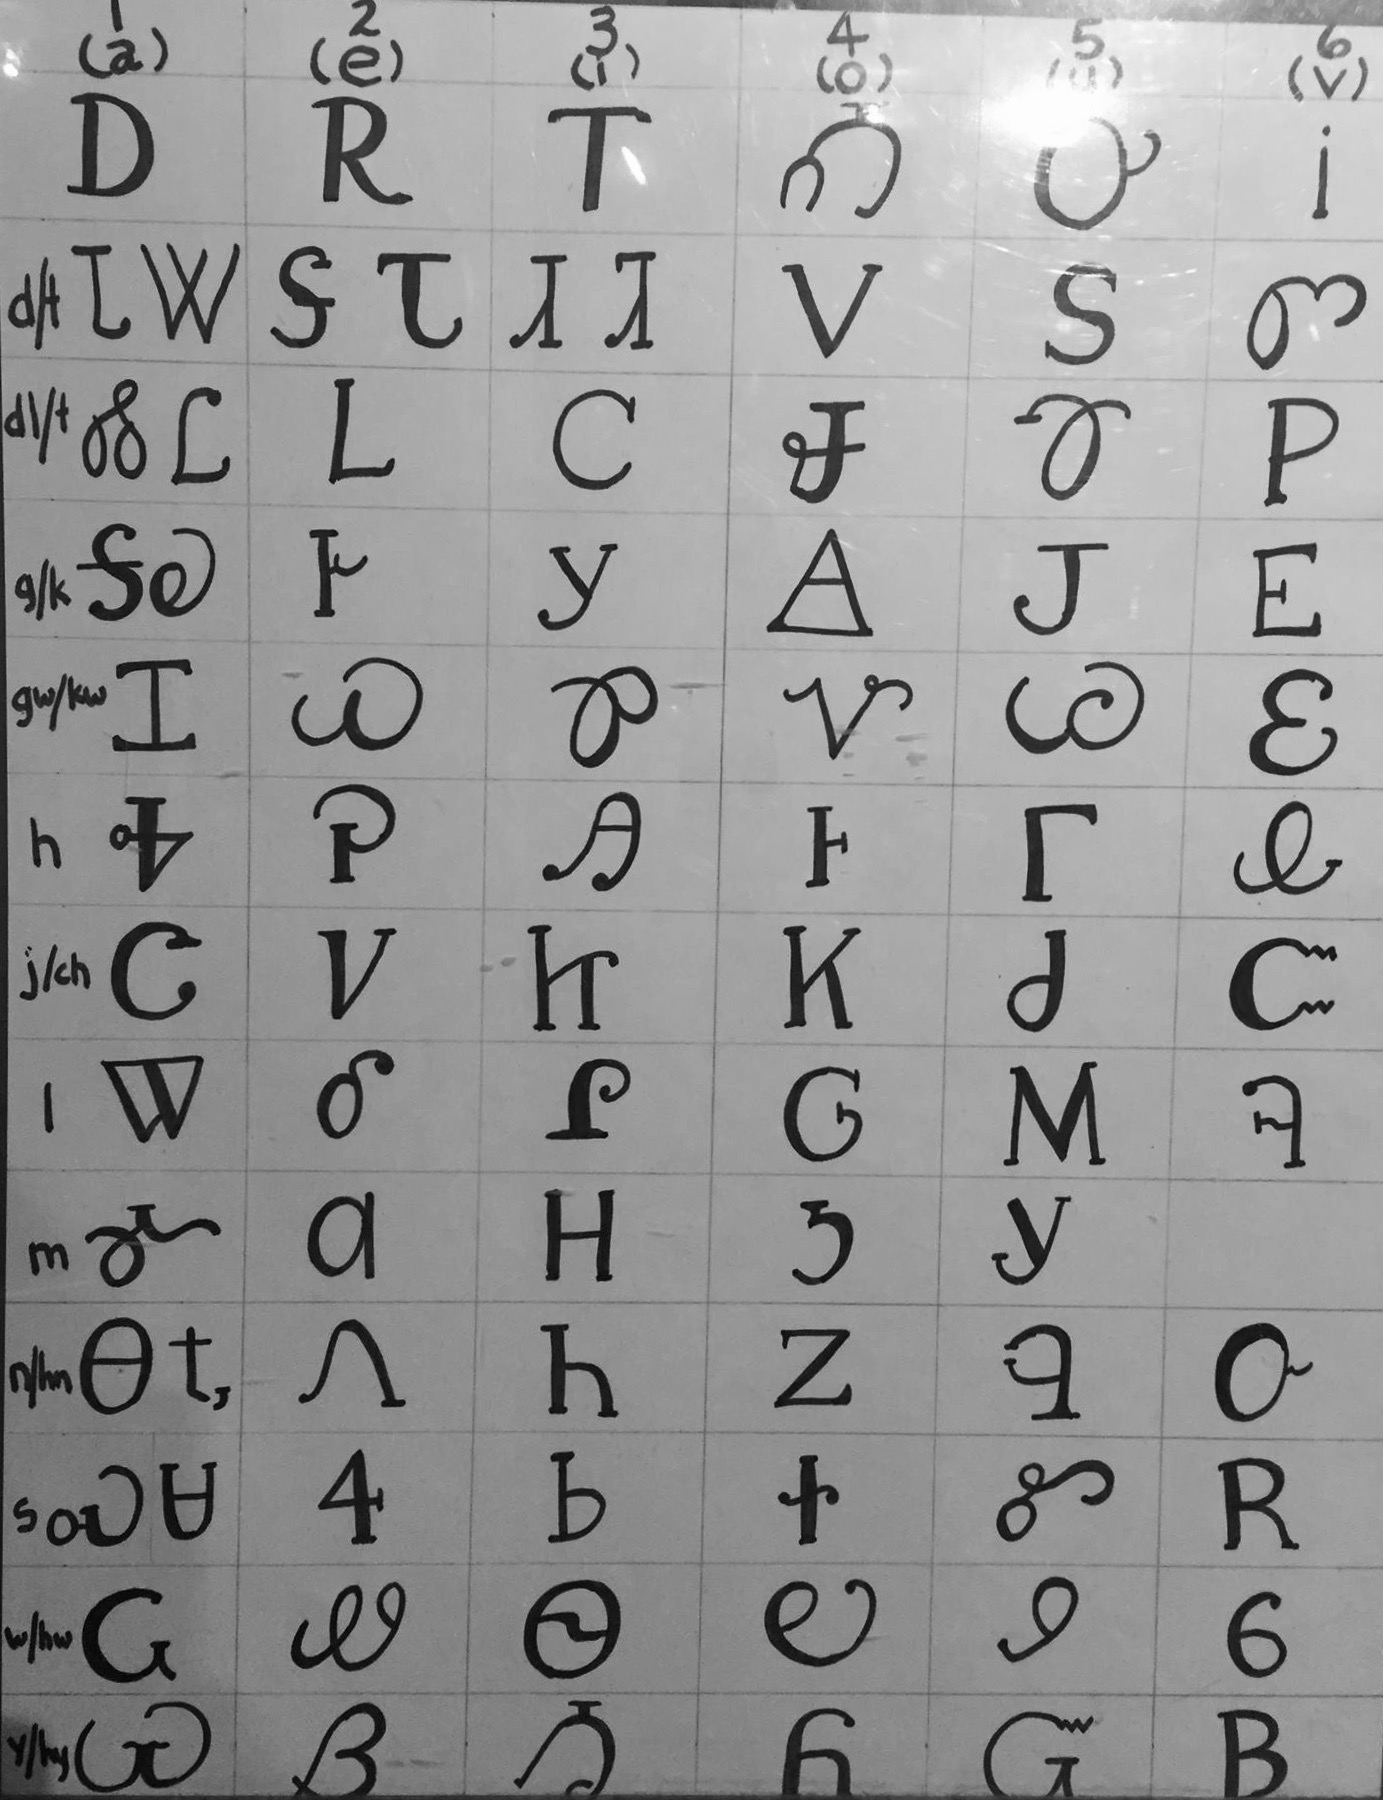 1 2 3 4 5 6
(a) (e) (i) (o) (u) (v)
Ꭰ Ꭱ Ꭲ Ꭳ Ꭴ Ꭵ
d/t Ꮣ Ꮤ Ꮥ Ꮦ Ꮧ Ꮨ Ꮩ Ꮪ Ꮫ
dl/t Ꮬ Ꮭ Ꮮ Ꮯ Ꮰ Ꮱ Ꮲ
g/k Ꭶ Ꭷ Ꭸ Ꭹ Ꭺ Ꭻ Ꭼ
gw/kw Ꮖ Ꮗ Ꮘ Ꮙ Ꮚ Ꮛ
h Ꭽ Ꭾ Ꭿ Ꮀ Ꮁ Ꮂ
j/ch Ꮳ Ꮴ Ꮵ Ꮶ Ꮷ Ꮸ
l Ꮃ Ꮄ Ꮅ Ꮆ Ꮇ Ꮈ
m Ꮉ Ꮊ Ꮋ Ꮌ Ꮍ
n/hn Ꮎ Ꮏ Ꮑ Ꮒ Ꮓ Ꮔ Ꮕ
s Ꮝ Ꮜ Ꮞ Ꮟ Ꮠ Ꮡ Ꮢ
w/hw Ꮹ Ꮺ Ꮻ Ꮼ Ꮽ Ꮾ
y/hy Ꮿ Ᏸ Ᏹ Ᏺ Ᏻ Ᏼ